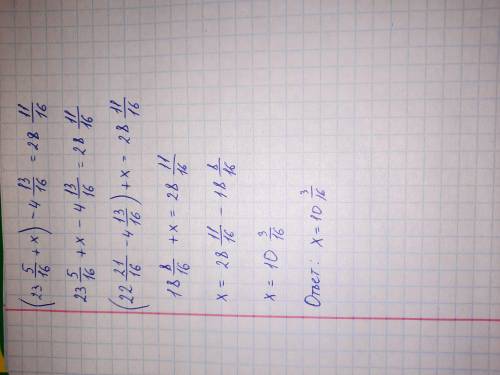 (23 5/16 + x) - 4 13/16 = 28 11/16
23 5/16 + x - 4 13/16 = 28 11/16
(22 21/16 - 4 13/16) + x = 28 11/16
18 8/16 + x = 28 11/16
x = 28 11/16 - 18 8/16
x = 10 3/16
Ответ: x = 10 3/16